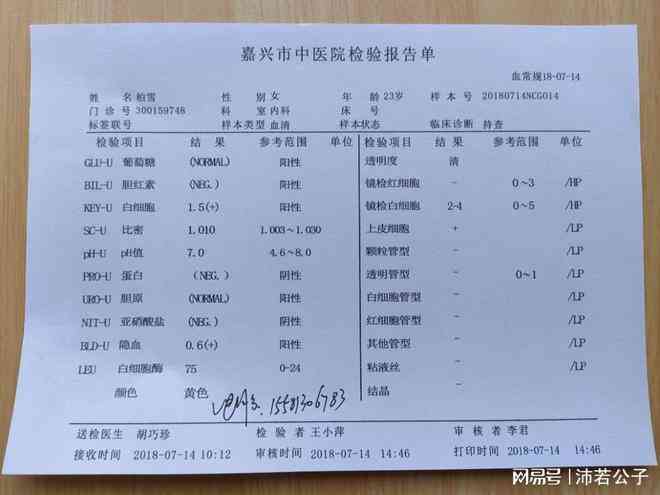 嘉兴市中医院检验报告单
血常规18-07-14
姓 名 柏雪 性 别 女 年 龄 23岁 样 本 号 20180714NCG014
门 诊 号 300159748 科 室 内科 床 号
标签联号 样本类型 血清 样本状态 临床诊断 待查
检验项目 结 果 参考范围 单位 检验项目 结 果 参考范围 单位
GLU-U 葡萄糖 (NORMAL) 阳性 透明度 清
BIL-U 胆红素 (NEG.) 阳性 镜检红细胞 - 0~3 /HP
KEY-U 白细胞 1.5(+) 阳性 镜检白细胞 2-4 0~5 /HP
SC-U 比密 1.010 1.003~1.030 上皮细胞 + /LP
pH-U pH值 7.0 4.6~8.0 颗粒管型 - /LP
PRO-U 蛋白 (NEG.) 阴性 透明管型 - 0~1 /LP
URO-U 胆原 (NORMAL) 阳性 白细胞管型 - /LP
NIT-U 亚硝酸盐 (NEG.) 阴性 红细胞管型 - /LP
BLD-U 隐血 0.6(+) 阴性 其他管型 - /LP
LEU 白细胞酶 75 0-24 粘液丝 - /LP
颜色 黄色 结晶 -
15581306783
送检医生 胡巧珍 检 验 者 王小萍 审 核 者 李君
接收时间 2018-07-14 10:12 审核时间 2018-07-14 14:46 打印时间 2018-07-14 14:46
网易号 | 沛若公子